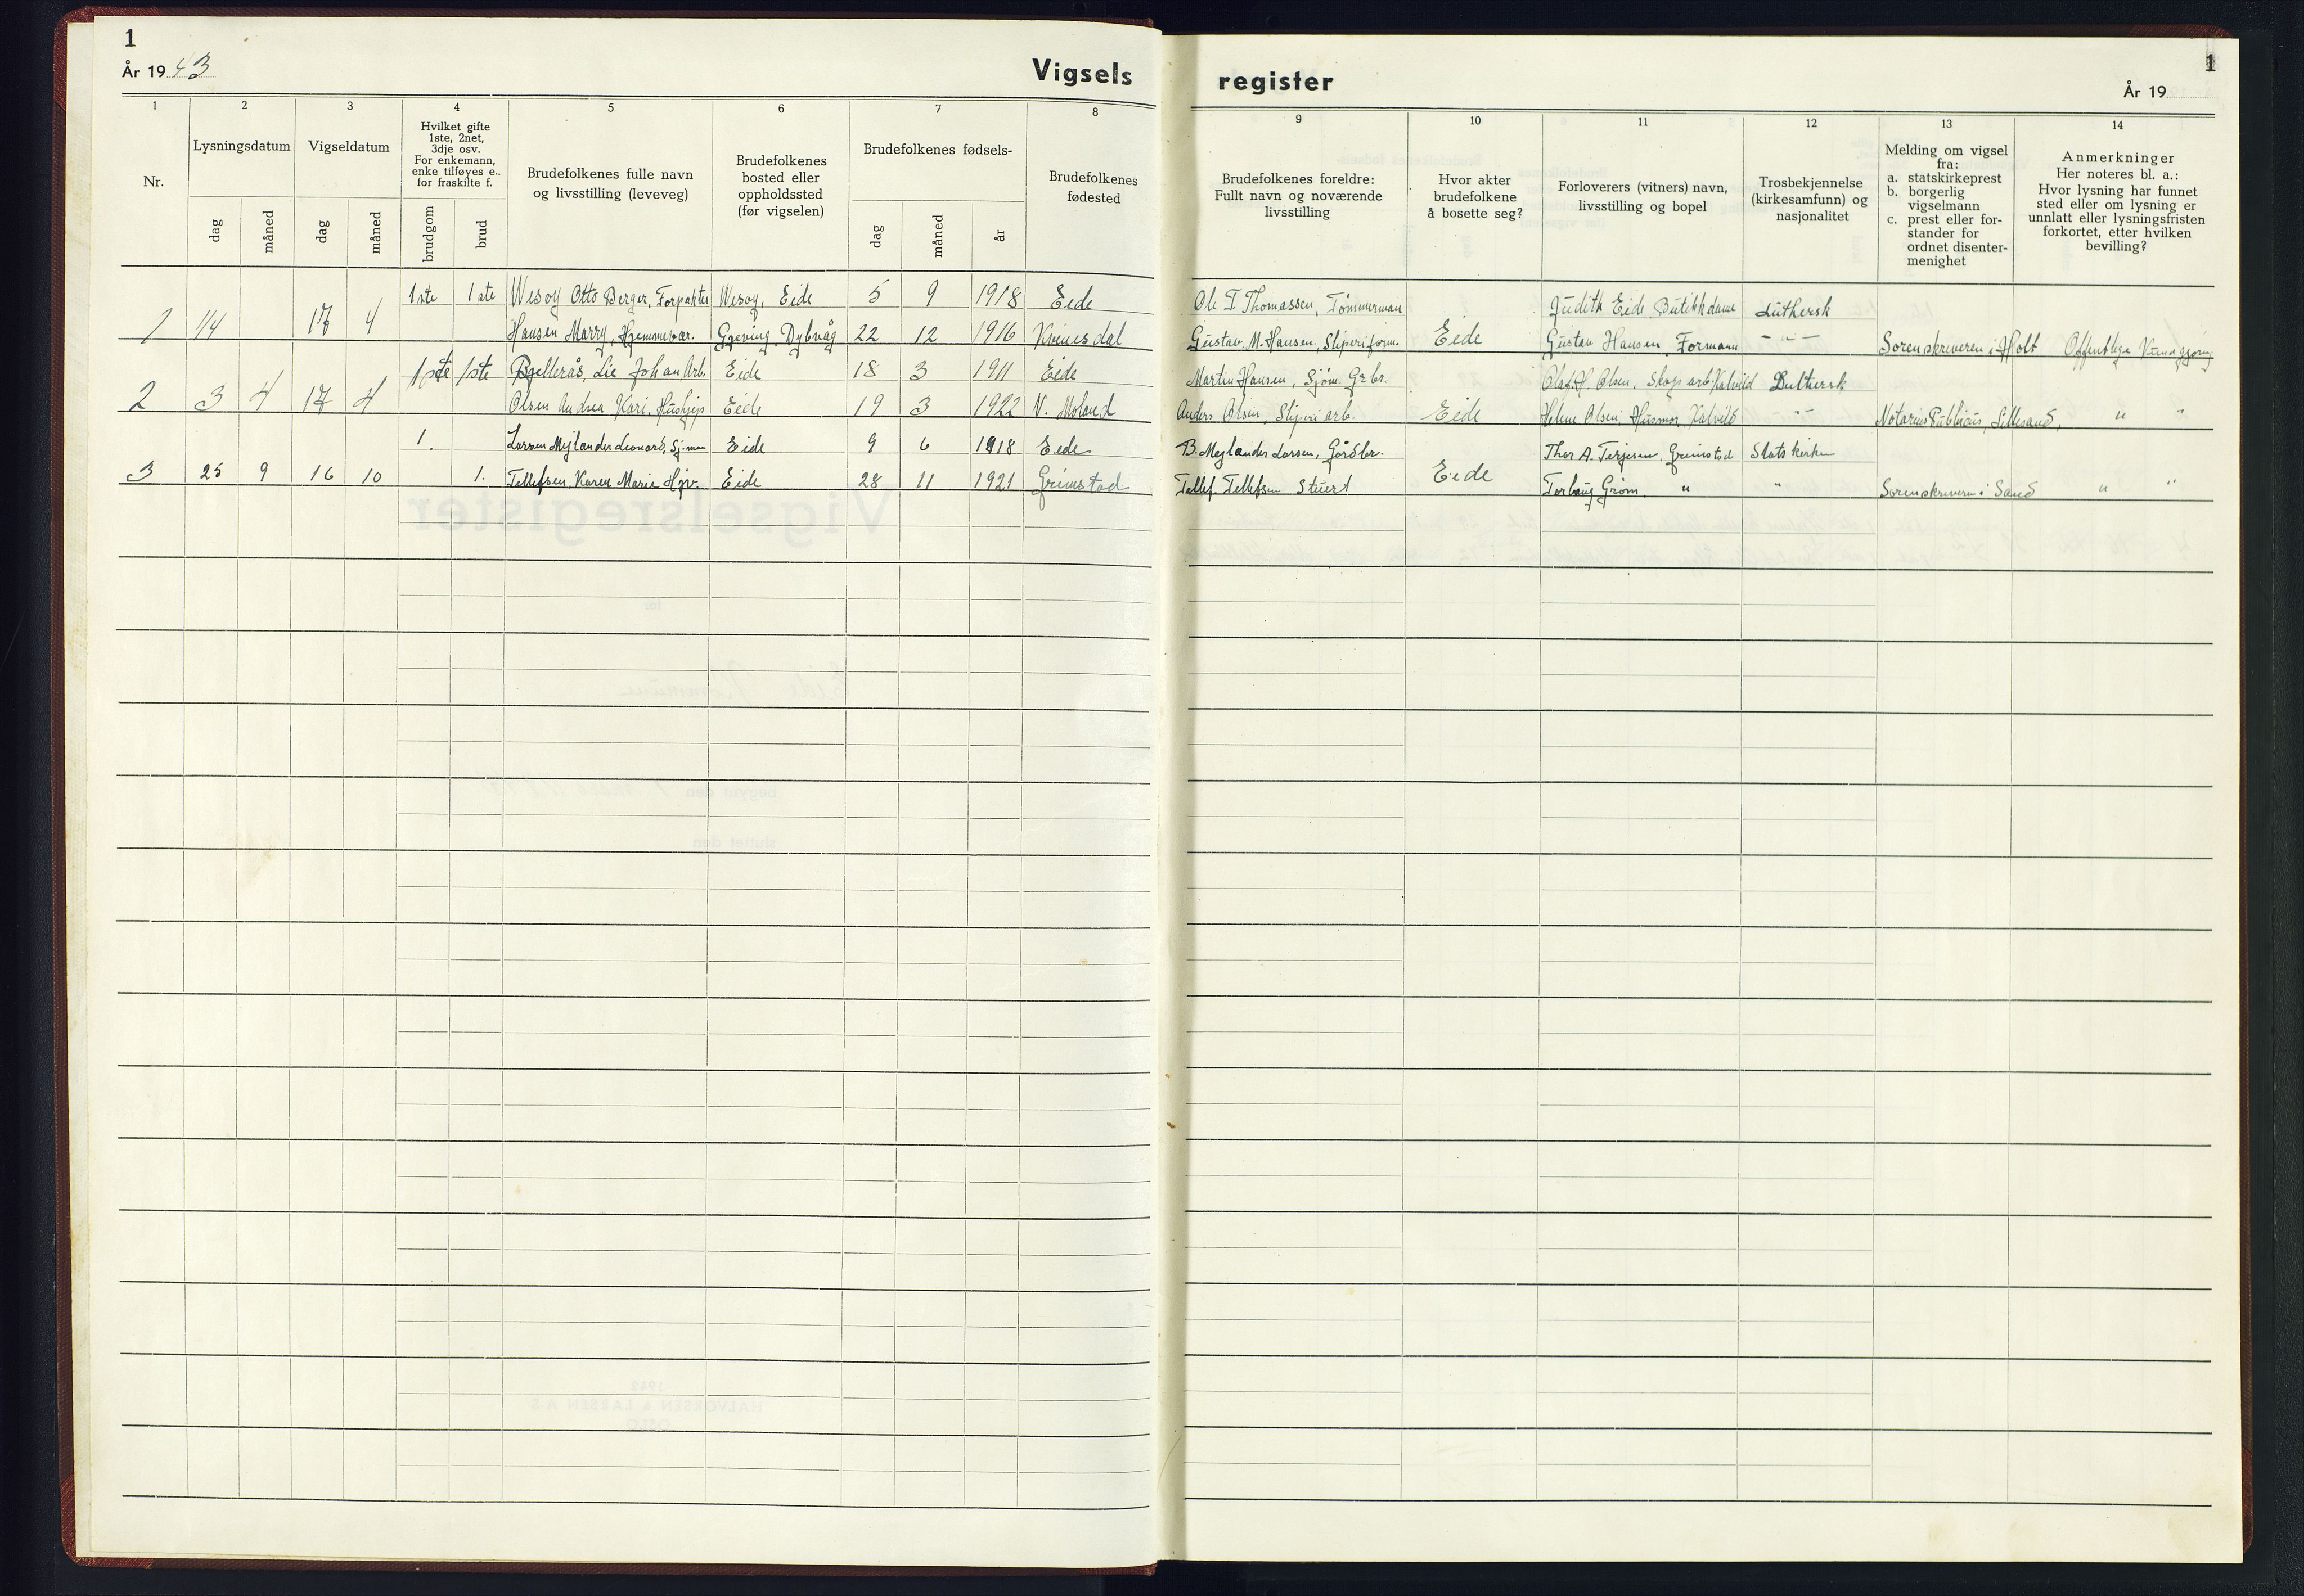 1
År 19 43
Vigsels
register
1
År 19
1
2
3
4
5
6
7
8
9
10
11
12
13
14
Nr.
Lysningsdatum
dag
måned
Vigseldatum
dag
måned
Hvilket gifte
1ste, 2net,
3dje osv.
For enkemann,
enke tilføyes e..
for fraskilte f.
brudgom
brud
Brudefolkenes fulle navn
og livsstilling (leveveg)
Brudefolkenes
bosted eller
oppholdssted
(før vigselen)
Brudefolkenes fødsels-
dag
måned
år
Brudefolkenes
fødested
Brudefolkenes foreldre:
Fullt navn og noværende
livsstilling
Hvor akter
brudefolkene
å bosette seg?
Forloverers (vitners) navn,
livsstilling og bopel
Trosbekjennelse
(kirkesamfunn) og
nasjonalitet
Melding om vigsel
fra:
a. statskirkeprest
b. borgerlig
vigselmann
c. prest eller for-
stander for
ordnet disenter-
menighet
Anmerkninger
Her noteres bl. a.:
Hvor lysning har funnet
sted eller om lysning er
unnlatt eller lysningsfristen
forkortet, etter hvilken
bevilling?
1ste 1ste Wesøy Otto Berger, Forpakter Wesøy, Eide 5 9 1918 Eide Ole T. Thomassen, Tømmerman Judith Eide Butikkdame Luthersk
1 1/4 17 4 Hansen Marry, Hjemmevær. Gjeving, Dybvåg 22 12 1916 Kvinesdal Gustav M. Hansen, Sliperiform. Eide Gustav Hansen Formann -"- Sorenskriveren i Holt Offentlige Kunngjøring
1ste 1ste Bjellerås, Lie Johan Arb. Eide 18 3 1911 Eide Martin Hansen, Sjøm. Grbr. Olaf H. Olsen, Skogsarb. Kalvild Luthersk
2 3 4 17 4 Olsen Andrea Kari, Hushjp Eide 19 3 1922 V. Moland Anders Olsen, Sliperiarb. Eide Helene Olsen, Husmor, Kalvild " Notarius Publicus, Lillesand, " "
1. Larsen Mejlander Leonard, Sj.man Eide 9 6 1918 Eide B. Mejlander Larsen, Gårdbr. Thor A. Terjesen, Grimstad Statskirken
3 25 9 16 10 1. Tellefsen Karen Marie Hjv. Eide 28 11 1921 Grimstad Tellef Tellefsen Stuert Eide Torbaug Grøm. " " Sorenskriveren i Sand " "